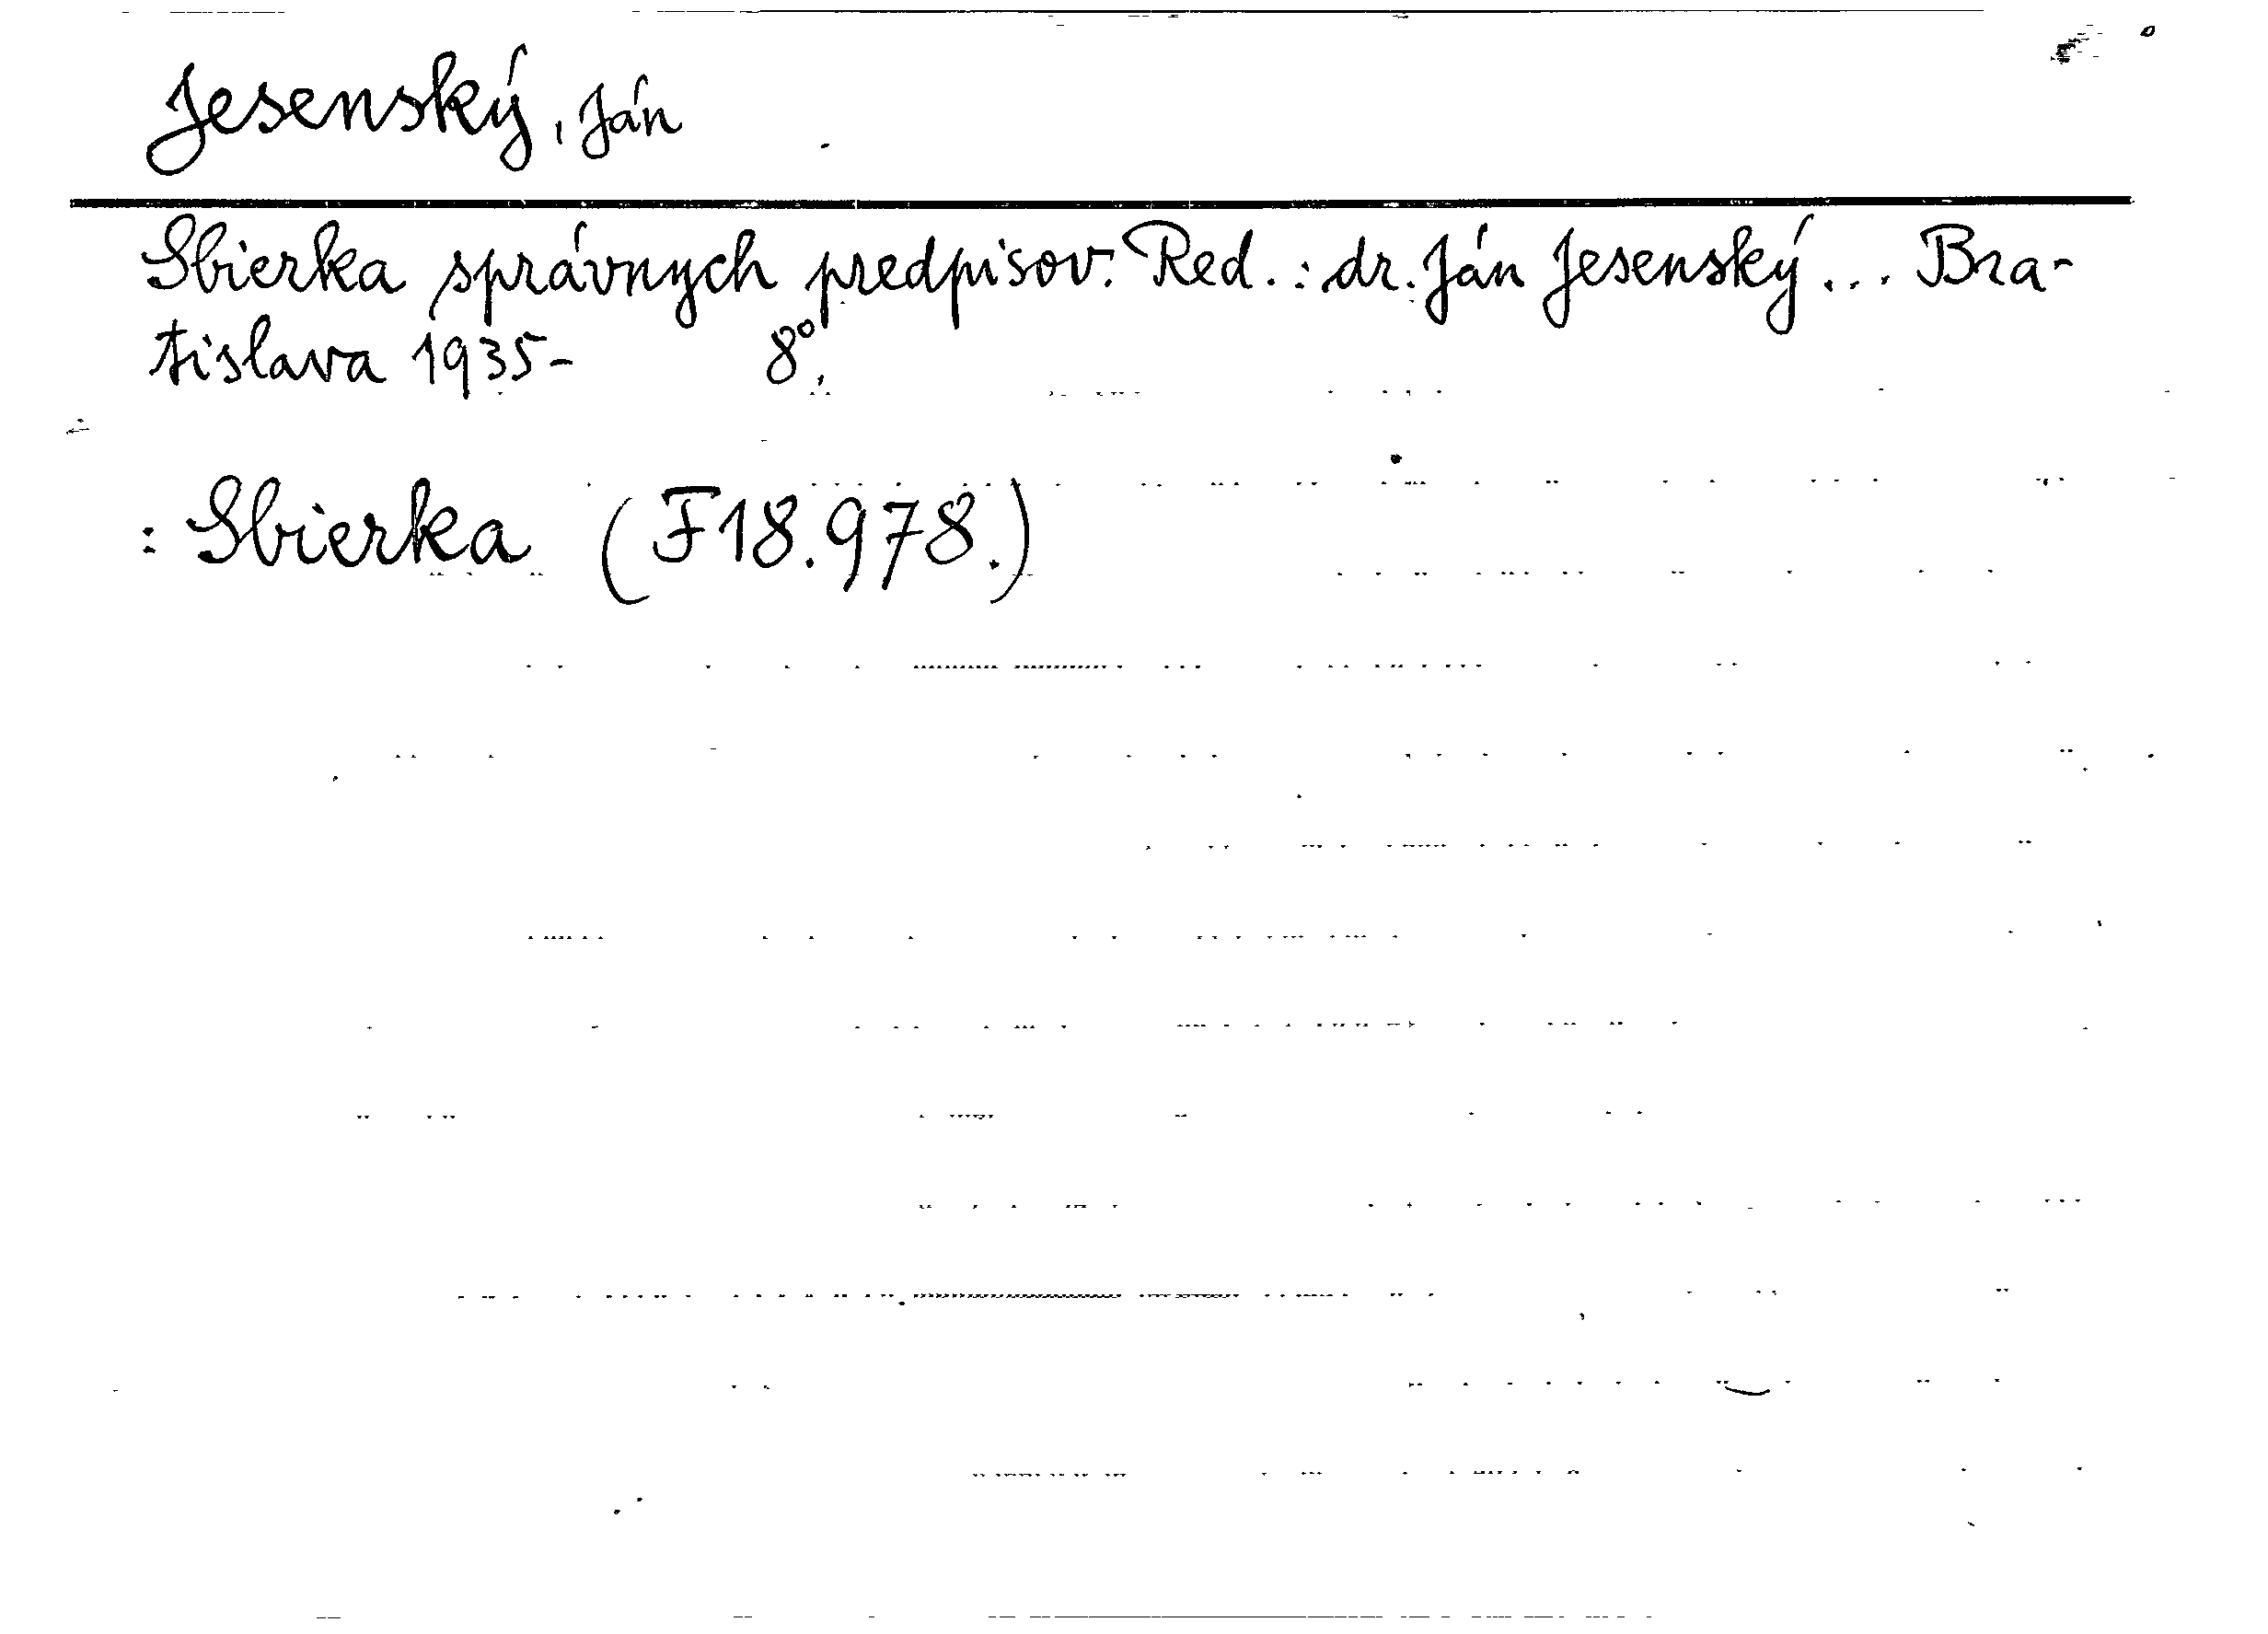 Jesenský, Ján
Sbierka správnych predpisov. Red.: dr. Ján Jesenský... Bra-
tislava 1935- 8°.
: Sbierka (F18.978.)